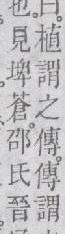 曰植謂之傳傳謂
也見埤蒼邵氏晉